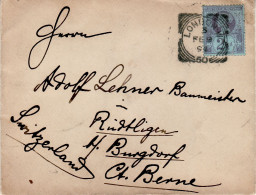 Herrn
Adolf Lehner Baumeister
Rüdtligen
b/ Burgdorf
Ct. Berne
Switzerland
LONDON
FE
50